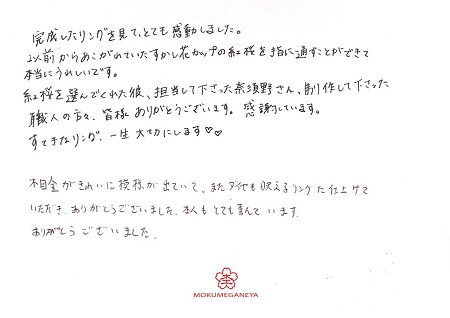 完成したリングを見て、とても感動しました。
以前からあこがれていたすかし花カップの紅桜を指に通すことができて
本当にうれしいです。
紅桜を選んでくれた彼、担当して下さった奈須野さん、制作して下さった
職人の方々、皆様ありがとうございます。感謝しています。
すてきなリング、一生大切にします♡♡
木目金がきれいに模様が出ていて、またダイヤも映えるリングに仕上げて
いただき、ありがとうございました。本人もとても喜んでいます。
ありがとうございました。
MOKUMEGANEYA